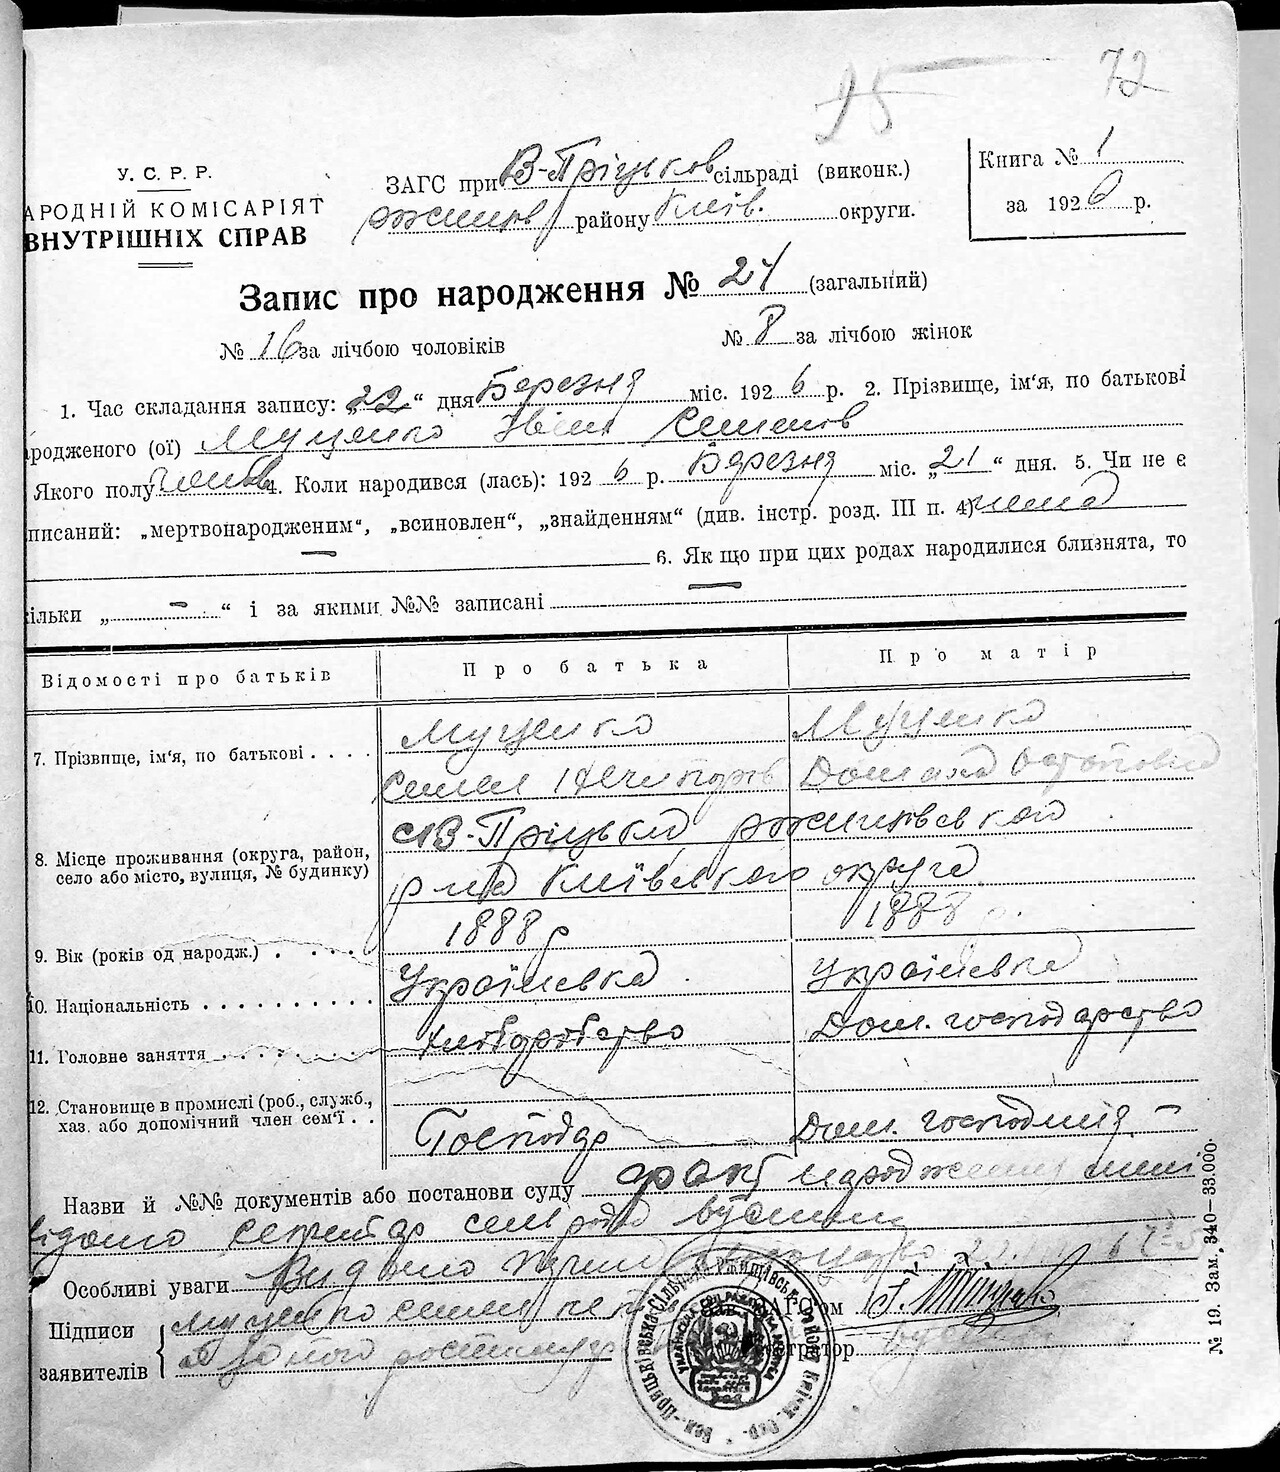 75 72
У. С. Р. Р.
АРОДНІЙ КОМІСАРІЯТ
ВНУТРІШНІХ СПРАВ
ЗАГС при В-Пріцьков сільраді (виконк.)
ржищов району Київ. округи.
Книга № 1
за 1926 р.
Запис про народження № 24 (загальний)
№ 16 за лічбою чоловіків № 8 за лічбою жінок
1. Час складання запису: „22“ дня Березня міс. 1926 р. 2. Прізвище, ім'я, по батькові
родженого (ої) Муценко Івана Семенов
Якого полу 4. Коли народився (лась): 1926 р. Березня міс. „21“ дня. 5. Чи не є
писаний: „мертвонародженим“, „всиновлен“, „знайденням“ (див. інстр. розд. III п. 4) нема
— 6. Як що при цих родах народилися близнята, то
ільки „ — “ і за якими №№ записані —
Відомості про батьків Про батька Про матір
7. Прізвище, ім'я, по батькові . . . . Муценко Муценко
Семен Нечипоров Домаха Остаповна
8. Місце проживання (округа, район, село або місто, вулиця, № будинку) с В-Пріцька ржищівського
р-на Київського округа
9. Вік (років од народж.) . . . . . 1888 р 1888 р.
10. Національність . . . . . . . . . . Українська Українська
11. Головне заняття . . . . . . . . . Хліборобство Дом. господарство
12. Становище в промислі (роб., служб., хаз. або допомічний член сем'ї . . Господар Дом. господиня —
Назви й №№ документів або постанови суду факт народження мені
відомо секретар сельради
Особливі уваги Видано
Підписи заявителів Муценко Семен
а за його
Зав. ЗАГС'ом
Реєстратор
№ 19. Зам. 340—33.000.